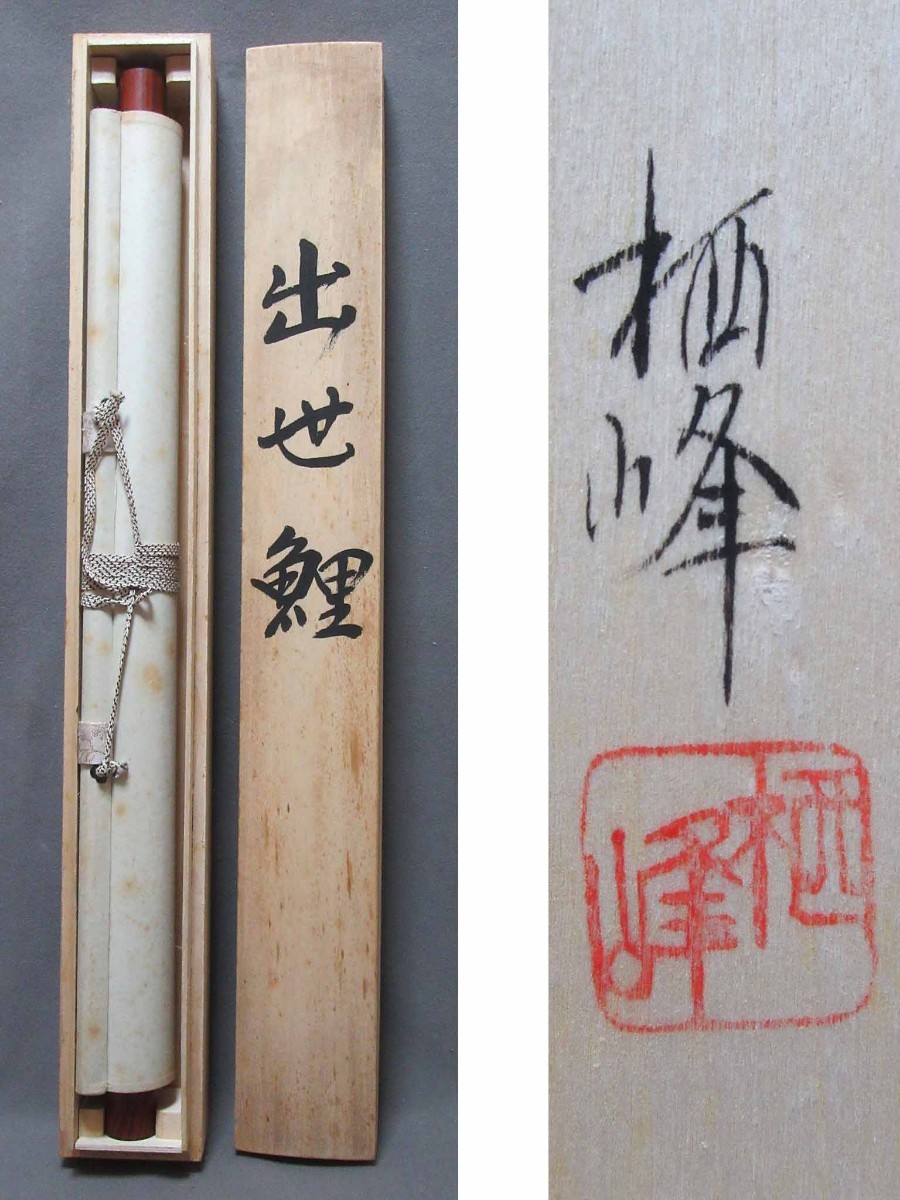 出世鯉
栖峰
栖峰